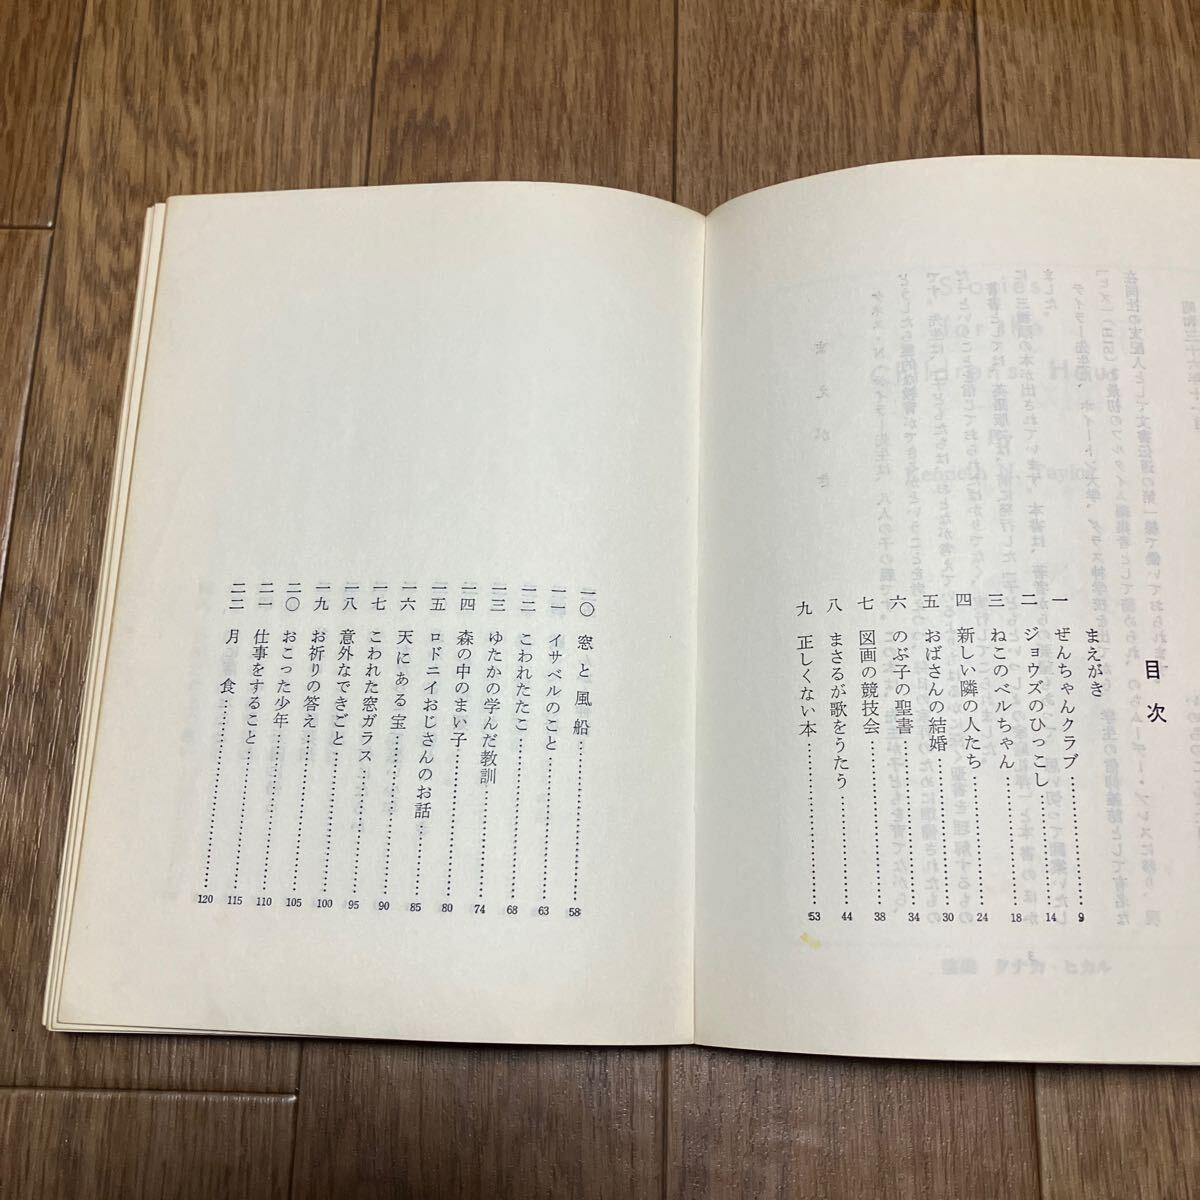 目次
まえがき
一 ぜんちゃんクラブ……………9
二 ジョウズのひっこし……………14
三 ねこのベルちゃん……………18
四 新しい隣の人たち……………24
五 おばさんの結婚……………30
六 のぶ子の聖書……………34
七 図画の競技会……………38
八 まさるが歌をうたう……………44
九 正しくない本……………53
一〇 窓と風船……………58
一一 イサベルのこと……………63
一二 こわれたたこ……………68
一三 ゆたかの学んだ教訓……………74
一四 森の中のまい子……………80
一五 ロドニイおじさんのお話……………85
一六 天にある宝……………90
一七 こわれた窓ガラス……………95
一八 意外なできごと……………100
一九 お祈りの答え……………105
二〇 おこった少年……………110
二一 仕事をすること……………115
二二 月食……………120